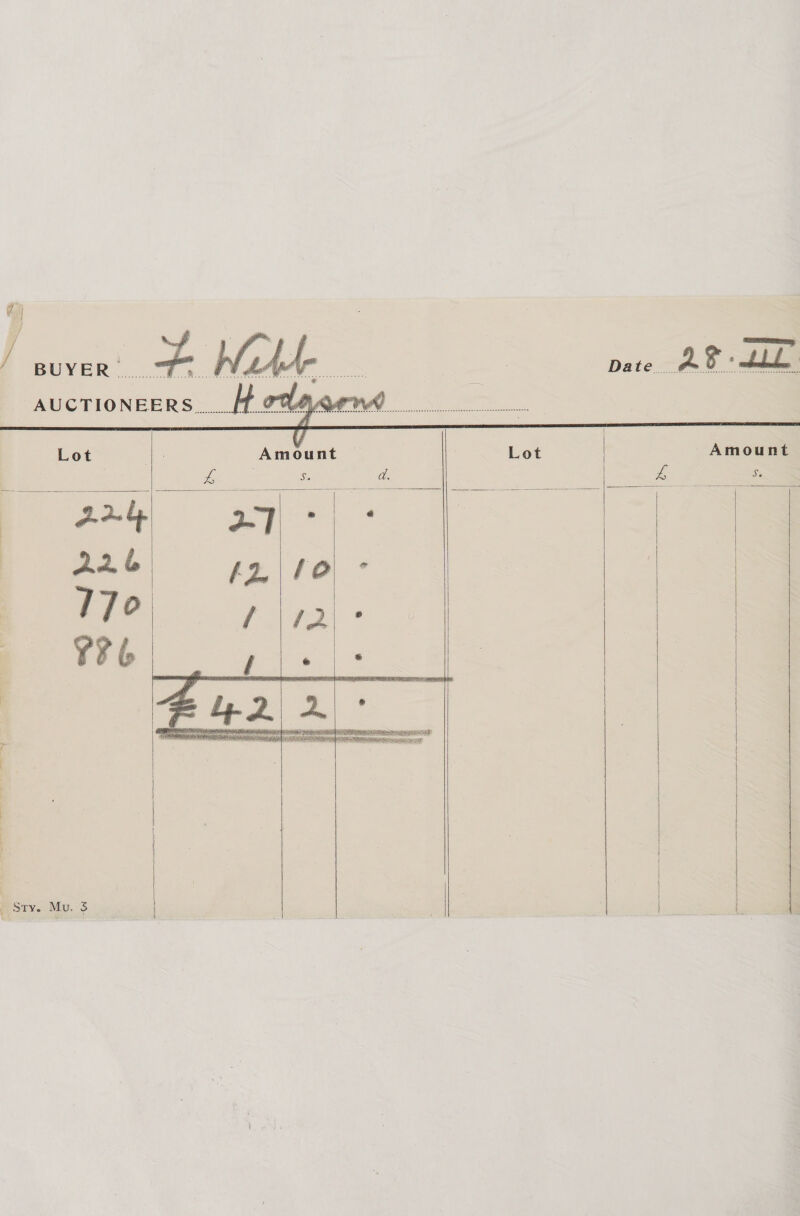 BUYER F. Webb Date 28·III
AUCTIONEERS Hodgsons
Lot Amount Lot Amount
£ s. d. £ s.
224 27 · ·
226 12 10 ·
770 1 12 ·
886 1 · ·
£42 2 ·
Sty. Mu. 3